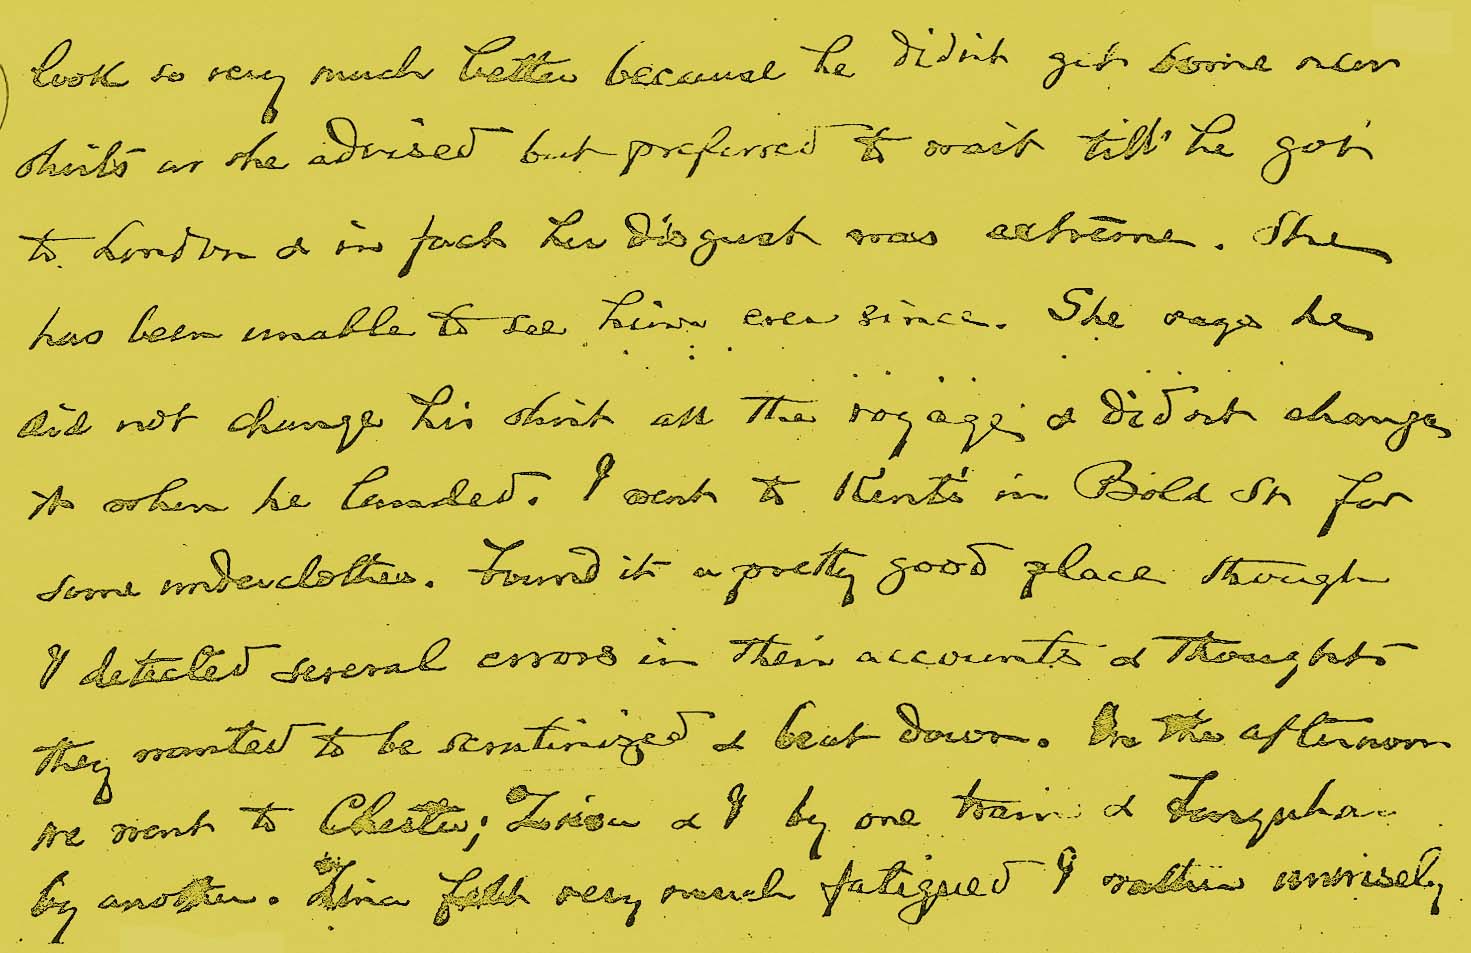 look so very much better because he didn't get some new
shirts as she advised but preferred to wait till he got
to London & in fact her disgust was extreme. She
has been unable to see him ever since. She says he
did not change his shirt all the voyage & didn't change
it when he landed. I went to Kent's in Bold St for
some underclothes. Found it a pretty good place though
I detected several errors in their accounts & thought
they wanted to be scrutinized & beat down. In the afternoon
we went to Chester; Lina & I by one train & Farquhar
by another. Lina felt very much fatigued I rather unwisely